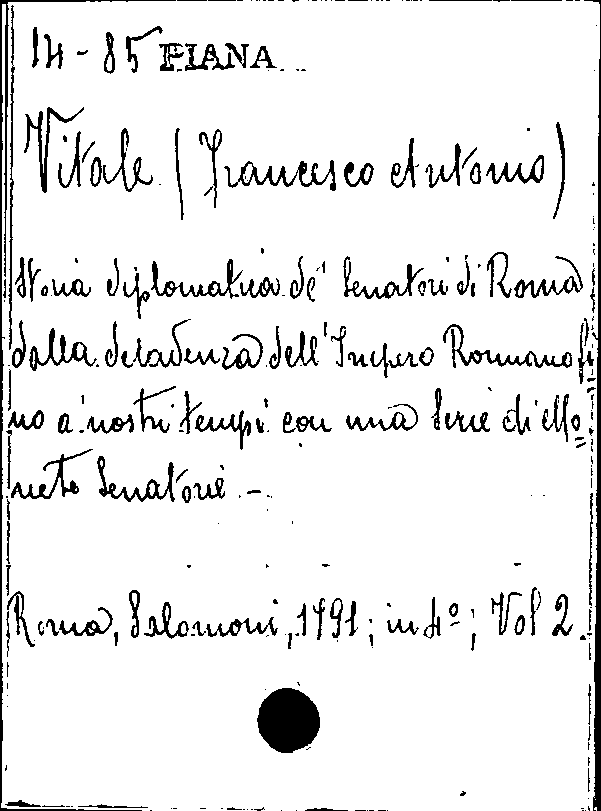 14-85 PIANA
Vitale (Francesco Antonio)
Storia diplomatica de' Senatori di Roma
dalla decadenza dell'Impero Romano fi
no a' nostri tempi con una Serie di Mo=
nete Senatorie.-
Roma, Salomoni, 1791; in 4º; Vol 2.